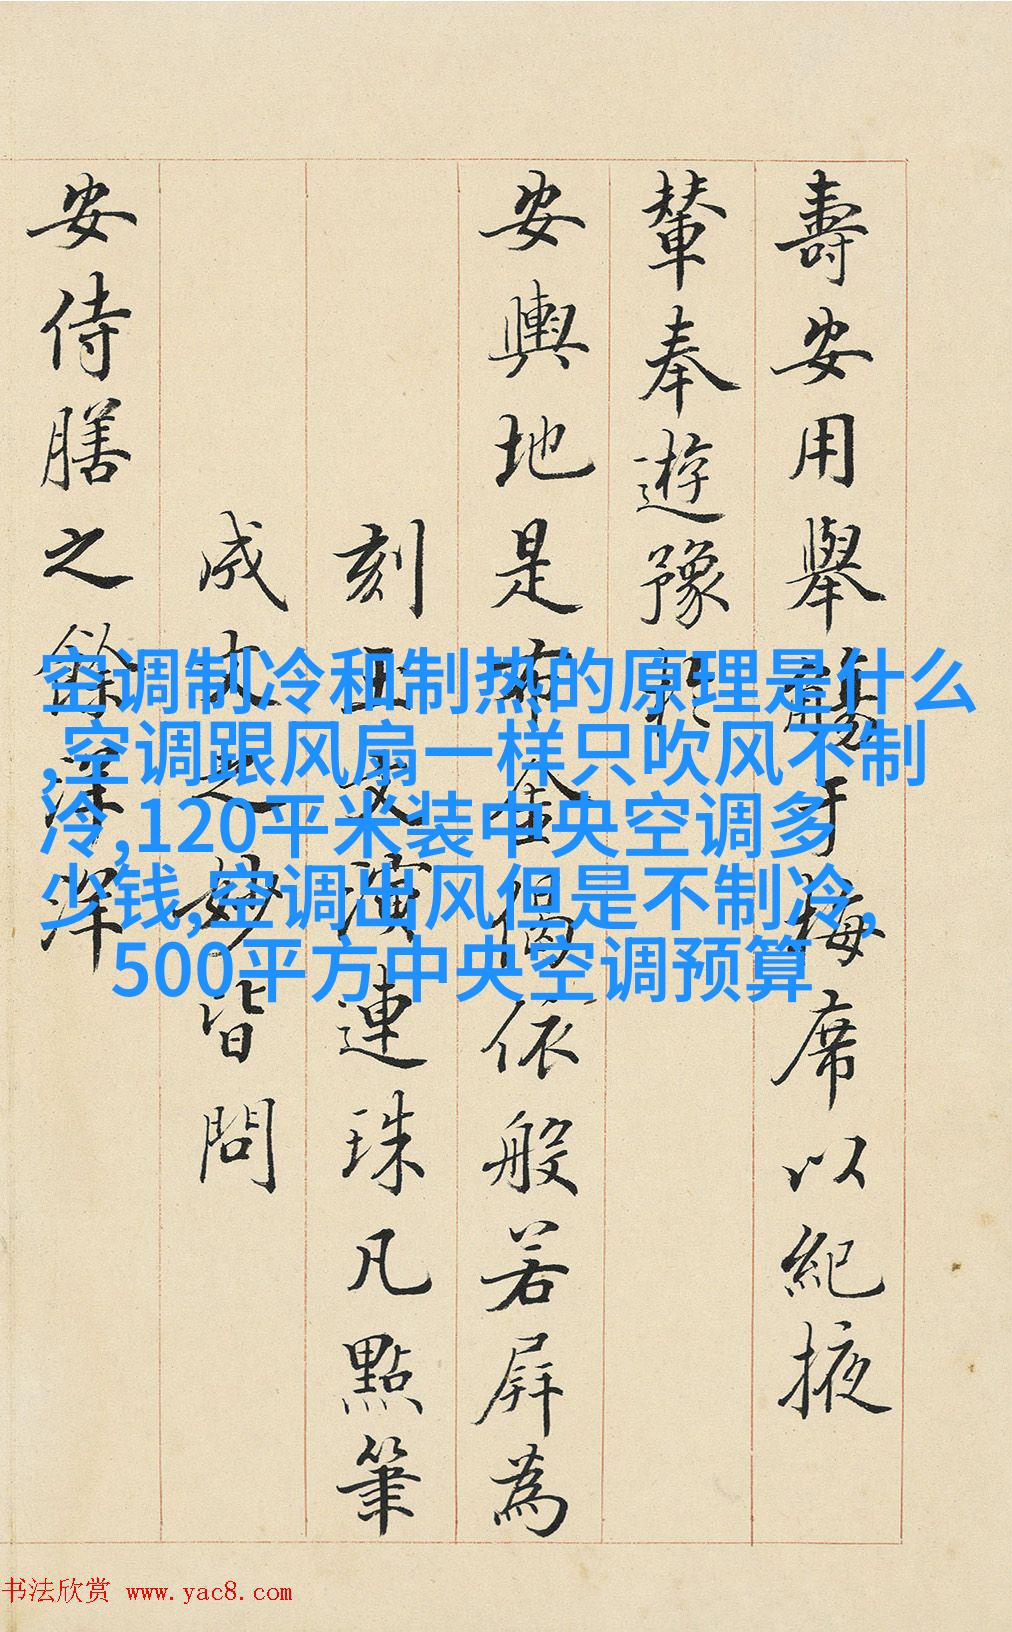 壽安用舉觴于梅席以紀掖
輦奉遊豫
安輿地是布金偈依般若屏為
刻玉文演連珠凡點筆
成文之妙皆問
安侍膳之餘
空调制冷和制热的原理是什么
,空调跟风扇一样只吹风不制
冷,120平米装中央空调多
少钱,空调出风但是不制冷,
500平方中央空调预算
书法欣赏 www.yac8.com